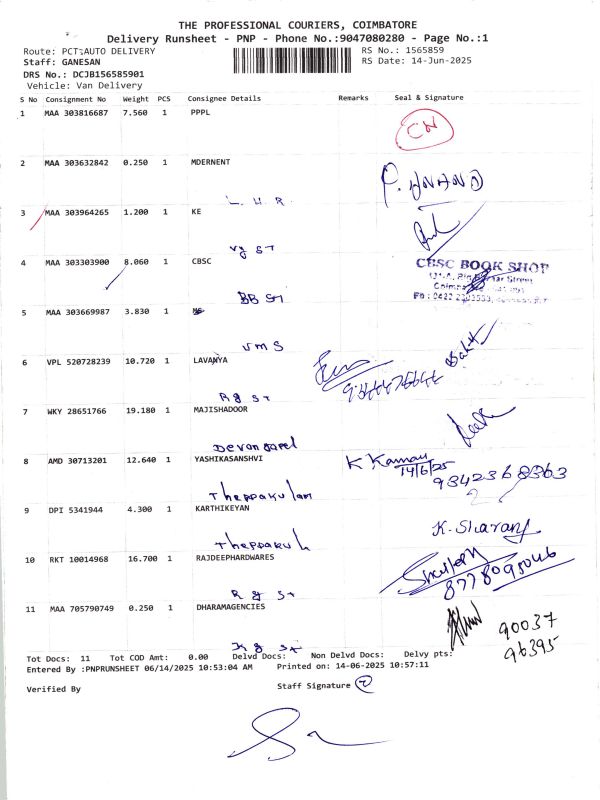 THE PROFESSIONAL COURIERS, COIMBATORE
Delivery Runsheet - PNP - Phone No.:9047080280 - Page No.:1
Route: PCT:AUTO DELIVERY RS No.: 1565859
Staff: GANESAN RS Date: 14-Jun-2025
DRS No.: DCJB156585901
Vehicle: Van Delivery
S No Consignment No Weight PCS Consignee Details Remarks Seal & Signature
1 MAA 303816687 7.560 1 PPPL
CN
2 MAA 303632842 0.250 1 MDERNENT
L U R
3 MAA 303964265 1.200 1 KE
Vy ST
4 MAA 303303900 8.060 1 CBSC
CBSC BOOK SHOP
BB St
5 MAA 303669987 3.830 1
VMS
6 VPL 520728239 10.720 1 LAVANYA
Rg St
7 WKY 28651766 19.180 1 MAJISHADOOR
8 AMD 30713201 12.640 1 YASHIKASANSHVI
K Kannan
14/6/25
9842368363
Theppakulam
9 DPI 5341944 4.300 1 KARTHIKEYAN
K. Sharany
10 RKT 10014968 16.700 1 RAJDEEPHARDWARES
8778095046
R g St
11 MAA 705790749 0.250 1 DHARAMAGENCIES
90037
96395
K g St
Tot Docs: 11 Tot COD Amt: 0.00 Delvd Docs: Non Delvd Docs: Delvy pts:
Entered By :PNPRUNSHEET 06/14/2025 10:53:04 AM Printed on: 14-06-2025 10:57:11
Verified By Staff Signature